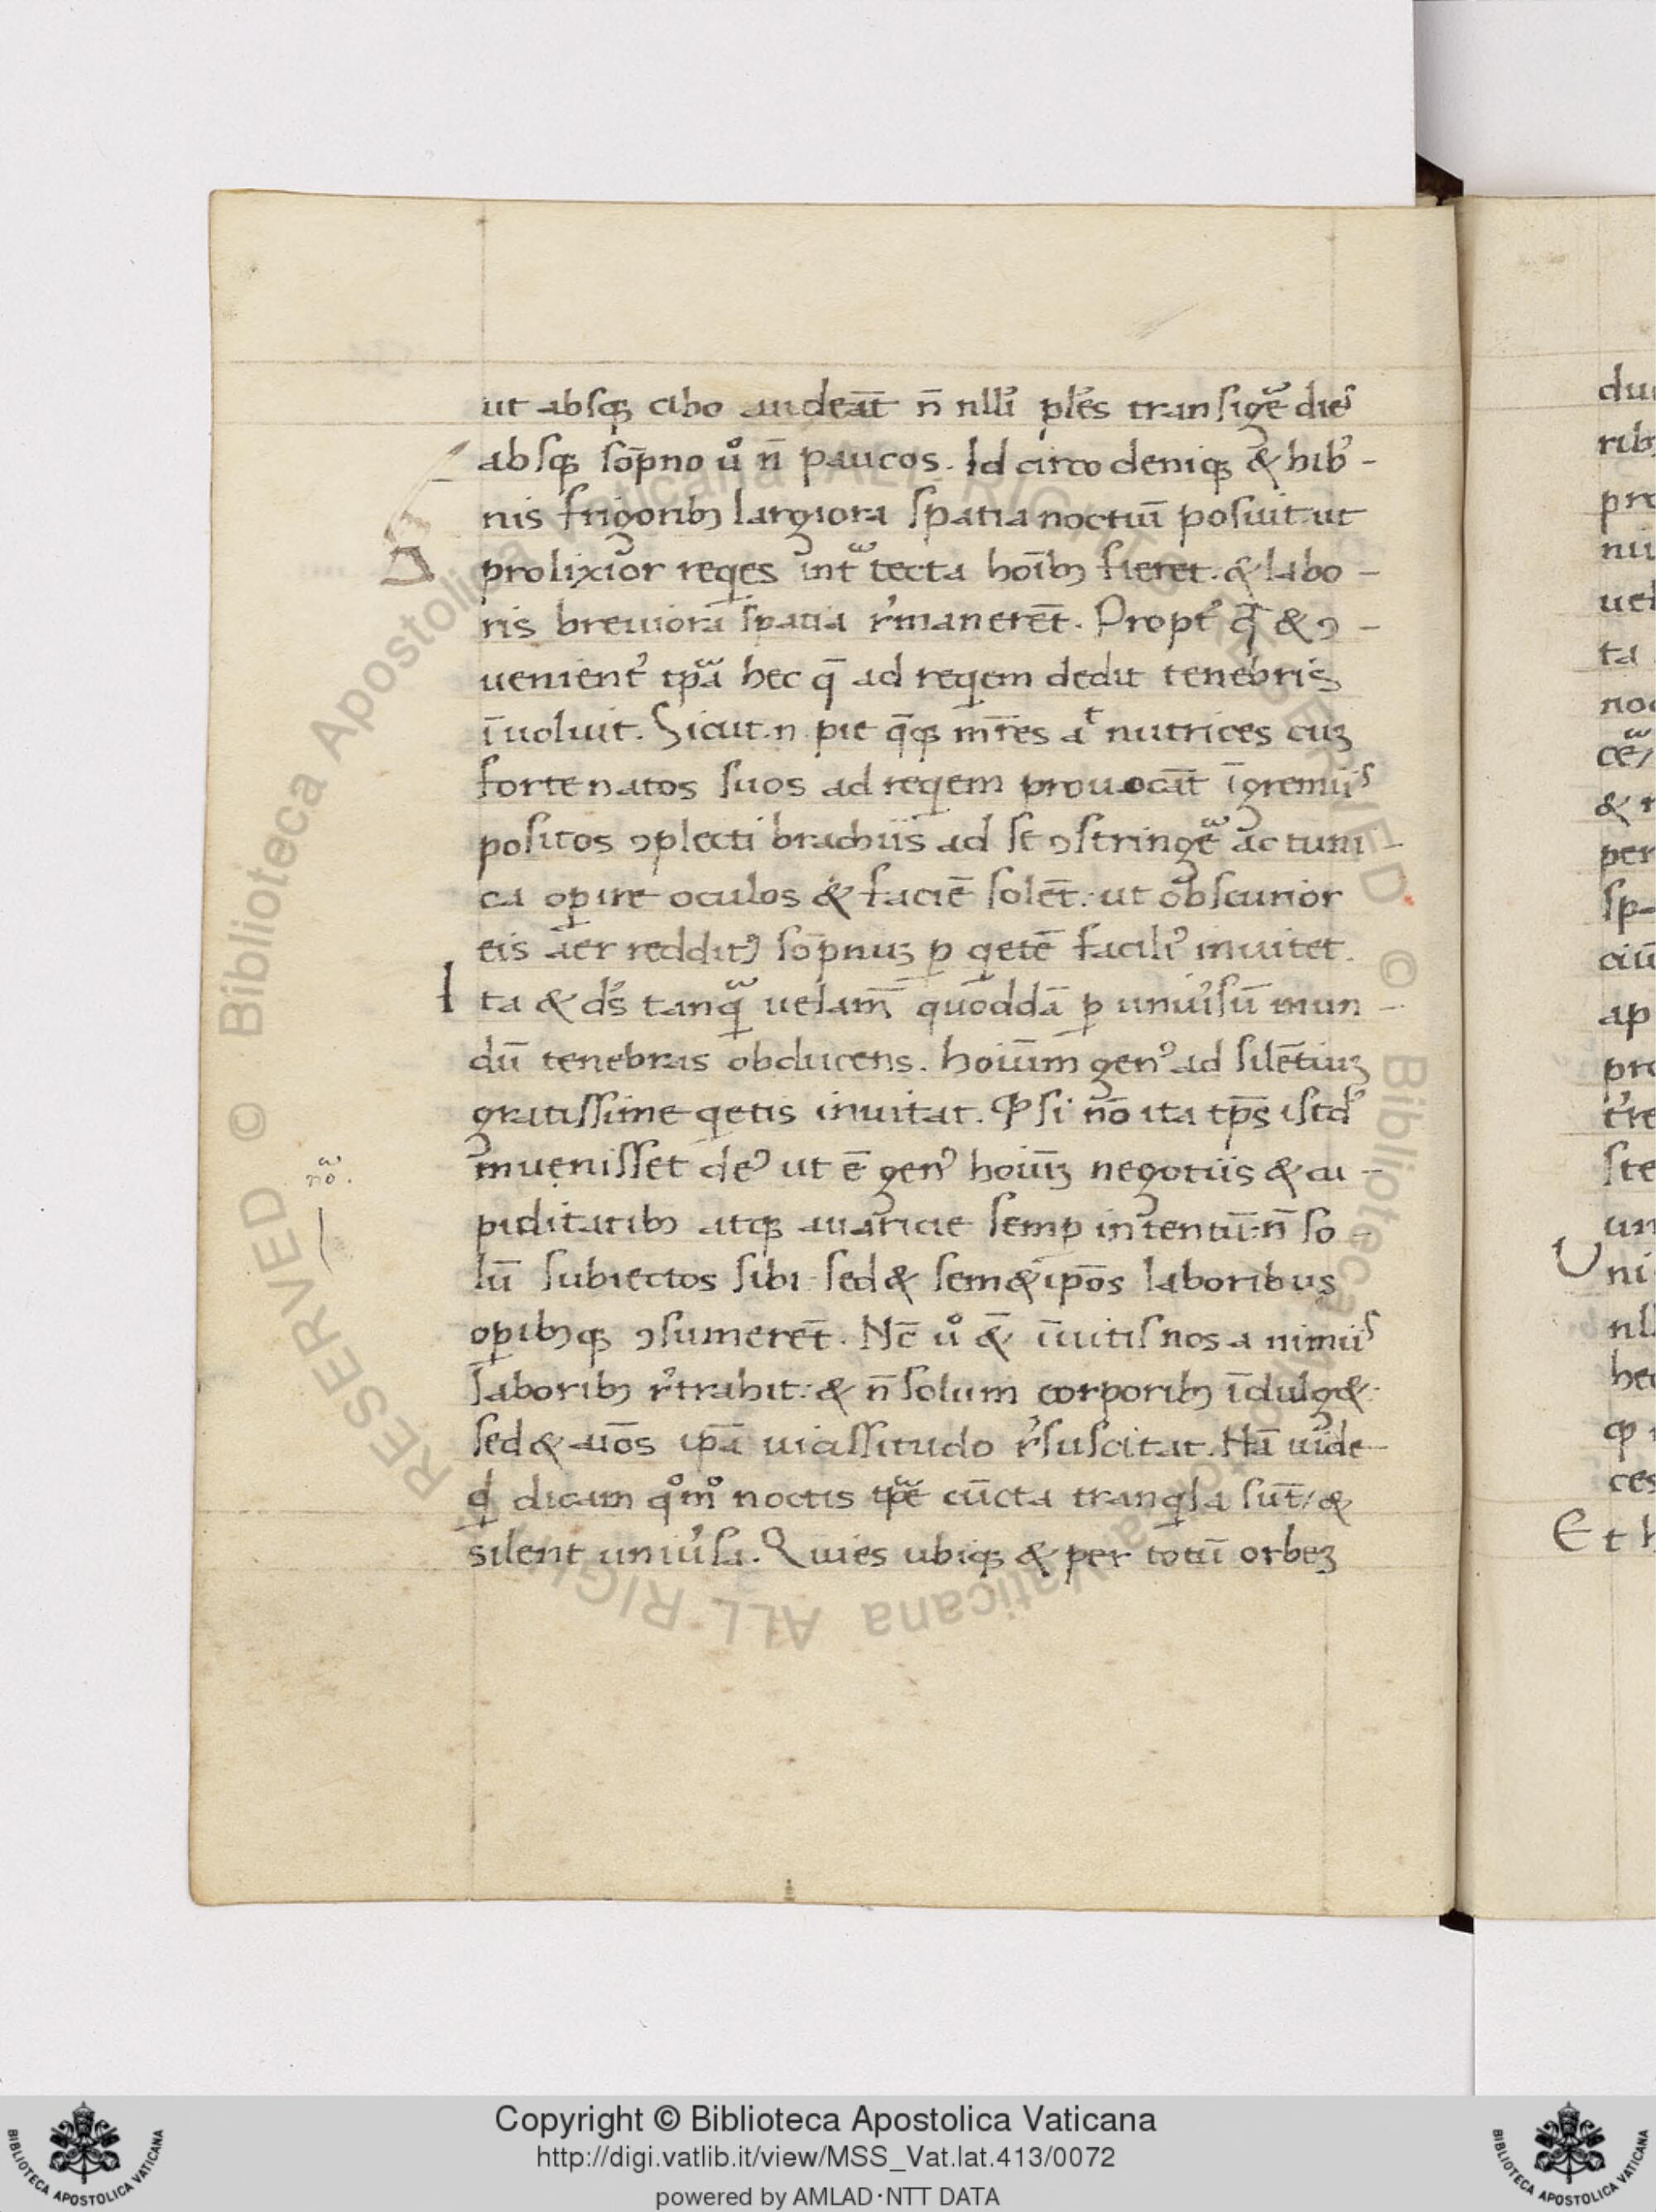 ut absqꝫ cibo audeāt n̄ nlli᷒ pl̓es transigē dieˢ
absqꝫ so̅pno u̇ n̄ paucos. Id circo deniqꝫ & hib̓ -
nis frigoribꝫ largiora spatia noctuū posuit ut
prolixior reqes int tecta hoı̄bꝫ fieret. & labo -
ris breuiora spatia r̓manerēt. Propt̓ q̄ & ꝯ -
uenient̓ tp̄a hec q̄ ad reqem dedit tenebris
īuoluit. Sicut .n. pie q̄qꝫ mr̄es aᵗ nutrices cuꝫ
forte natos suos ad reqem prouocāt ī gremiiˢ
positos ꝯplecti brachiis ad se ꝯstringē ac tuni -
ca opire oculos & faciē solēt. ut obscurior
eis aer redditꝰ so̅pnuꝫ p qetē facili᷒ inuitet.
Ita & d̓s tanq̄ uelam̄ quoddā ꝑ uniu̓sū mun -
dū tenebras obducens. hoiūm genꝰ ad silētiuꝫ
gratissime qetis inuitat. Qꝫ si nō ita tp̄s istd̓
inuenisset deꝰ ut ē genꝰ hoiūꝫ negotiis & cu -
piditatibꝫ atqꝫ auaricie semꝑ intentū. n̄ so -
lū subiectos sibi sed & sem&ip̄os laboribus
opibꝫqꝫ ꝯsumerēt. Nc̄ u̇ &̄ īuitis nos a nimiiˢ
laboribꝫ r̓trahit. & n̄ solum corporibꝫ īdulg&
sed & aīos ip̄a uicissitudo r̓suscitat. Nā uide
qͥ dicam qͦmͦ noctis tp̄e cūcta tranqla sūt/ &
silent uniu̓sa. Quies ubiqꝫ & per totū orbeꝫ
nō.
du
ribꝫ
pro
ta
cē/
& r
per
sp
ciū
ap
pro
t̓re
ste
un
Uni
nl
he
qꝫ
ces
Et h
Copyright © Biblioteca Apostolica Vaticana
http://digi.vatlib.it/view/MSS_Vat.lat.413/0072
powered by AMLAD·NTT DATA
BIBLIOTECA APOSTOLICA VATICANA
BIBLIOTECA APOSTOLICA VATICANA
© Biblioteca Apostolica Vaticana ALL RIGHTS RESERVED © Biblioteca Apostolica Vaticana ALL RIGHTS RESERVED